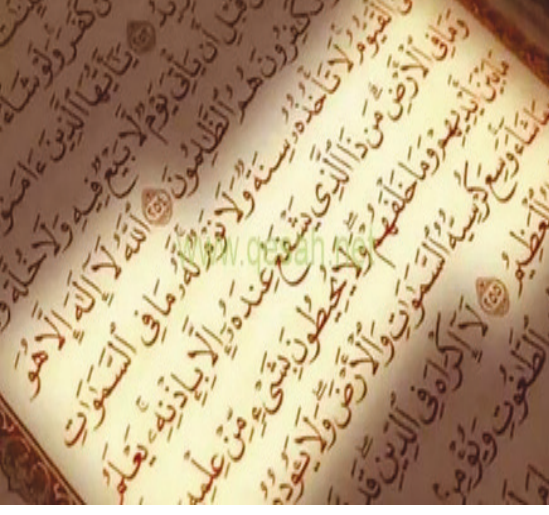 كَفَرَ وَلَوْ شَآءَ
۝٢٥٣ يَٰٓأَيُّهَا ٱلَّذِينَ ءَامَنُوٓا۟
قَبْلِ أَن يَأْتِىَ يَوْمٌ لَّا بَيْعٌ فِيهِ وَلَا خُلَّةٌ
هُمُ ٱلظَّٰلِمُونَ ۝٢٥٤ ٱللَّهُ لَآ إِلَٰهَ إِلَّا هُوَ
ٱلْقَيُّومُ لَا تَأْخُذُهُۥ سِنَةٌ وَلَا نَوْمٌ لَّهُۥ مَا فِى ٱلسَّمَٰوَٰتِ
وَمَا فِى ٱلْأَرْضِ مَن ذَا ٱلَّذِى يَشْفَعُ عِندَهُۥٓ إِلَّا بِإِذْنِهِۦ يَعْلَمُ
مَا بَيْنَ أَيْدِيهِمْ وَمَا خَلْفَهُمْ وَلَا يُحِيطُونَ بِشَىْءٍ مِّنْ عِلْمِهِۦٓ
شَآءَ وَسِعَ كُرْسِيُّهُ ٱلسَّمَٰوَٰتِ وَٱلْأَرْضَ وَلَا يَـُٔودُهُۥ
ٱلْعَظِيمُ ۝٢٥٥ لَآ إِكْرَاهَ فِى ٱلدِّينِ قَد
ٱلطَّٰغُوتِ وَيُؤْمِنۢ
www.qesah.net